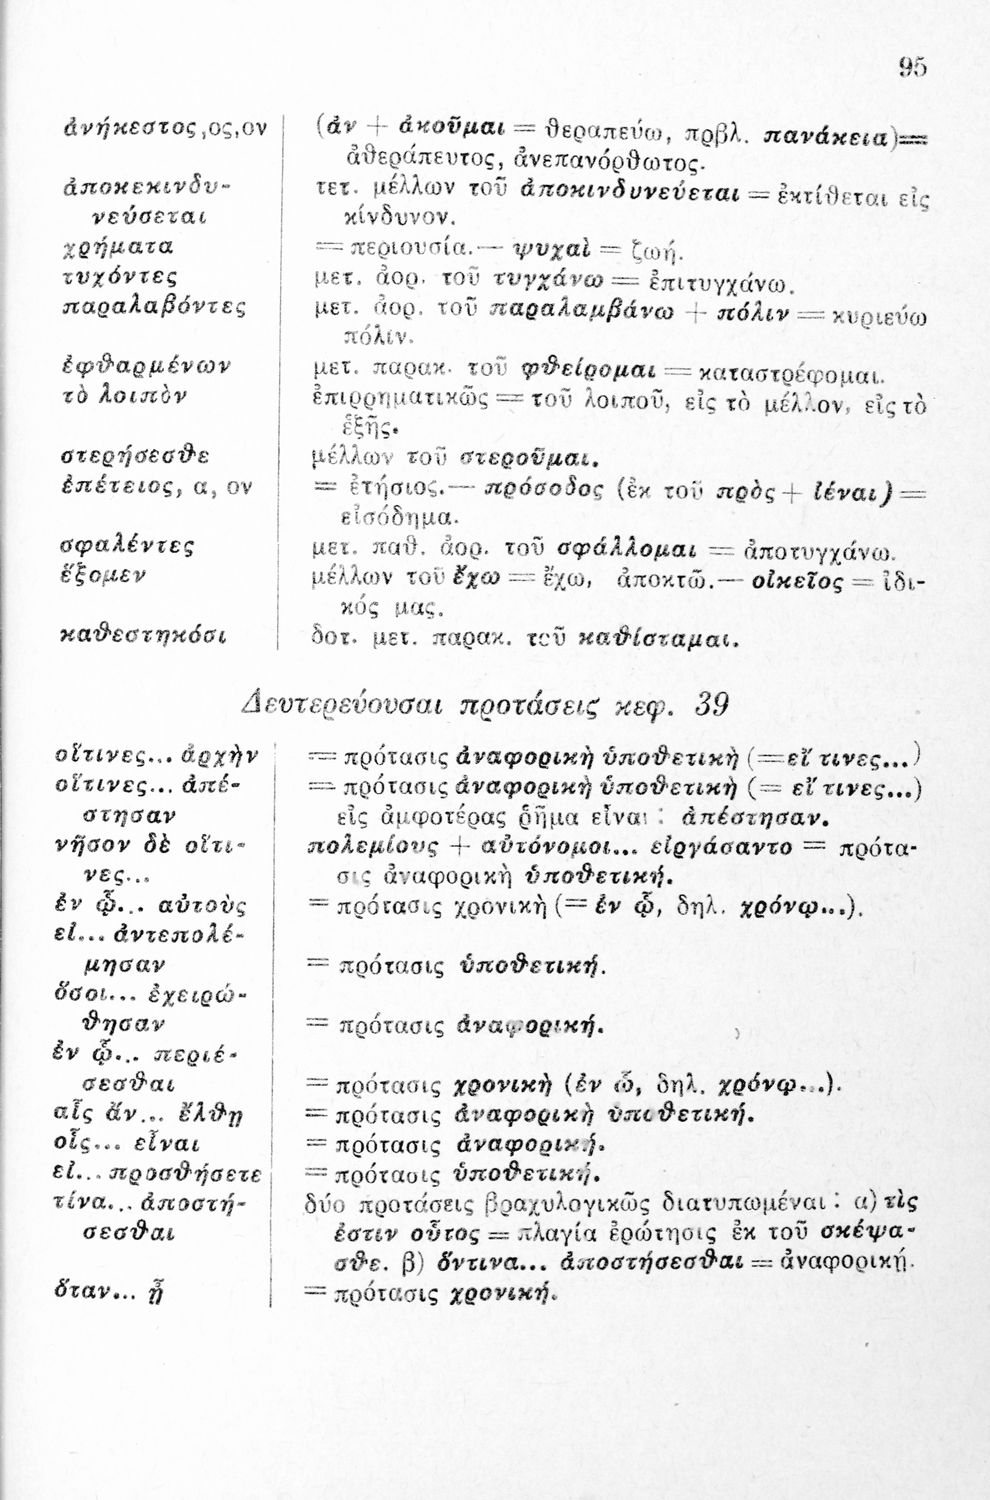 95
ἀνήκεστος,ος,ον (ἀν + ἀκοῦμαι = θεραπεύω, πρβλ. πανάκεια)=
ἀθεράπευτος, ἀνεπανόρθωτος.
ἀποκεκινδυ- τετ. μέλλων τοῦ ἀποκινδυνεύεται = ἐκτίθεται εἰς
νεύσεται κίνδυνον.
χρήματα = περιουσία.— ψυχαὶ = ζωή.
τυχόντες μετ. ἀορ. τοῦ τυγχάνω = ἐπιτυγχάνω.
παραλαβόντες μετ. ἀορ. τοῦ παραλαμβάνω + πόλιν = κυριεύω
πόλιν.
ἐφθαρμένων μετ. παρακ. τοῦ φθείρομαι = καταστρέφομαι.
τὸ λοιπὸν ἐπιρρηματικῶς = τοῦ λοιποῦ, εἰς τὸ μέλλον, εἰς τὸ
ἑξῆς.
στερήσεσθε μέλλων τοῦ στεροῦμαι.
ἐπέτειος, α, ον = ἐτήσιος.— πρόσοδος (ἐκ τοῦ πρὸς + ἰέναι) =
εἰσόδημα.
σφαλέντες μετ. παθ. ἀορ. τοῦ σφάλλομαι = ἀποτυγχάνω.
ἕξομεν μέλλων τοῦ ἔχω = ἔχω, ἀποκτῶ.— οἰκεῖος = ἰδι-
κός μας.
καθεστηκόσι δοτ. μετ. παρακ. τοῦ καθίσταμαι.
Δευτερεύουσαι προτάσεις κεφ. 39
οἵτινες... ἀρχὴν = πρότασις ἀναφορικὴ ὑποθετικὴ (=εἴ τινες...)
οἵτινες... ἀπέ- = πρότασις ἀναφορικὴ ὑποθετικὴ (= εἴ τινες...)
στησαν εἰς ἀμφοτέρας ῥῆμα εἶναι : ἀπέστησαν.
νῆσον δὲ οἵτι- πολεμίους + αὐτόνομοι... εἰργάσαντο = πρότα-
νες... σις ἀναφορικὴ ὑποθετική.
ἐν ᾧ... αὐτοὺς = πρότασις χρονικὴ (= ἐν ᾧ, δηλ. χρόνῳ...).
εἰ... ἀντεπολέ-
μησαν = πρότασις ὑποθετική.
ὅσοι... ἐχειρώ-
θησαν = πρότασις ἀναφορική.
ἐν ᾧ... περιέ-
σεσθαι = πρότασις χρονικὴ (ἐν ᾧ, δηλ. χρόνῳ...).
αἷς ἄν... ἔλθῃ = πρότασις ἀναφορικὴ ὑποθετική.
οἷς... εἶναι = πρότασις ἀναφορική.
εἰ... προσθήσετε = πρότασις ὑποθετική.
τίνα... ἀποστή- δύο προτάσεις βραχυλογικῶς διατυπωμέναι : α) τὶς
σεσθαι ἐστιν οὗτος = πλαγία ἐρώτησις ἐκ τοῦ σκέψα-
σθε. β) ὅντινα... ἀποστήσεσθαι = ἀναφορική.
ὅταν... ᾖ = πρότασις χρονική.